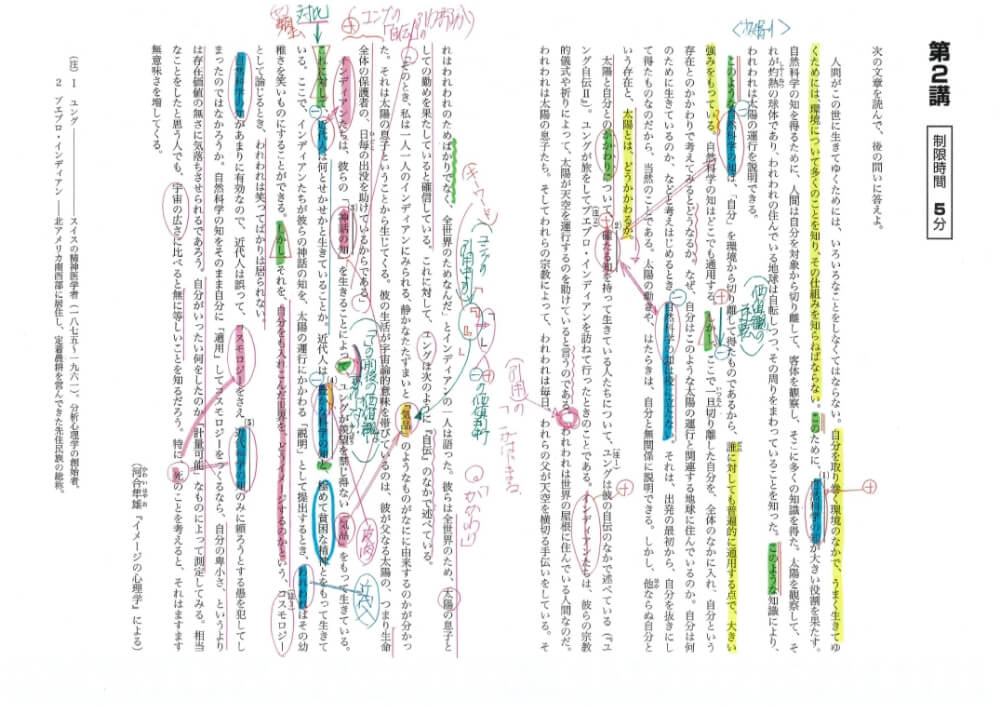 第2講
制限時間 5分
次の文章を読んで、後の問いに答えよ。
人間がこの世に生きてゆくためには、いろいろなことをしなくてはならない。自分を取り巻く環境のなかで、うまく生きてゆ
くためには、環境について多くのことを知り、その仕組みを知らねばならない。このために、自然科学の知が大きい役割を果たす。
自然科学の知を得るために、人間は自分を対象から切り離して、客体を観察し、そこに多くの知識を得た。太陽を観察して、そ
れが灼熱の球体であり、われわれの住んでいる地球は自転しつつ、その周りをまわっていることを知った。このような知識により、
われわれは太陽の運行を説明できる。
このような自然科学の知は、「自分」を環境から切り離して得たものであるから、誰に対しても普遍的に通用する点で、大きい
強みをもっている。自然科学の知はどこでも通用する。しかし、ここで一旦切り離した自分を、全体のなかに入れ、自分という
存在とのかかわりで考えてみるとどうなるか。なぜ、自分はこのような太陽の運行と関連する地球に住んでいるのか。自分は何
のために生きているのか、などと考えはじめるとき、自然科学の知は役に立たない。それは、出発の最初から、自分を抜きにし
て得たものなのだから、当然のことである。太陽の動きや、はたらきは、自分と無関係に説明できる。しかし、他ならぬ自分と
いう存在と、太陽とは、どうかかわるか。
太陽と自分とのかかわりについて、確たる知を持って生きている人たちについて、ユングは彼の自伝のなかで述べている(『ユ
ング自伝Ⅱ』)。ユングが旅をしてプエブロ・インディアンを訪ねて行ったときのことである。インディアンたちは、彼らの宗教
的儀式や祈りによって、太陽が天空を運行するのを助けていると言うのである。「われわれは世界の屋根に住んでいる人間なのだ。
われわれは太陽の息子たち。そしてわれらの宗教によって、われわれは毎日、われらの父が天空を横切る手伝いをしている。そ
れはわれわれのためばかりでなく、全世界のためなんだ」とインディアンの一人は語った。彼らは全世界のため、太陽の息子と
しての勤めを果たしていると確信している。これに対して、ユングは次のように『自伝』のなかで述べている。
「そのとき、私は一人一人のインディアンにみられる、静かなたたずまいと『気品』のようなものがなにに由来するのかが分かっ
た。それは太陽の息子ということから生じてくる。彼の生活が宇宙論的意味を帯びているのは、彼が父なる太陽の、つまり生命
全体の保護者の、日毎の出没を助けているからである」
インディアンたちは、彼らの「神話の知」を生きることによって、ユングが羨望を禁じ得ない「気品」をもって生きている。
これに対して、近代人は何とせかせかと生きていることか。近代人は、豊かな科学の知と、極めて貧困な精神とをもって生きて
いる。ここで、インディアンたちが彼らの神話の知を、太陽の運行にかかわる「説明」として提出するとき、われわれはその幼
稚さを笑いものにすることができる。しかし、それを、自分をも入れこんだ世界を、どうイメージするのかという、コスモロジー
として論じるとき、われわれは笑ってばかりは居られない。
自然科学の知があまりに有効なので、近代人は誤って、コスモロジーをさえ、近代科学の知のみに頼ろうとする愚を犯してし
まったのではなかろうか。自然科学の知をそのまま自分に「適用」してコスモロジーをつくるなら、自分の卑小さ、というより
は存在価値の無さに気落ちさせられるであろう。自分がいったい何をしたのか、「計量可能」なものによって測定してみる。相当
なことをしたと思う人でも、宇宙の広さに比べると無に等しいことを知るだろう。特に、死のことを考えると、それはますます
無意味さを増してくる。
(河合隼雄『イメージの心理学』による)
(注) 1 ユング――スイスの精神医学者(一八七五～一九六一)。分析心理学の創始者。
2 プエブロ・インディアン――北アメリカ南西部に居住し、定着農耕を営んできた先住民族の総称。
対比
ユングの
『自伝』の
皮肉
近代人